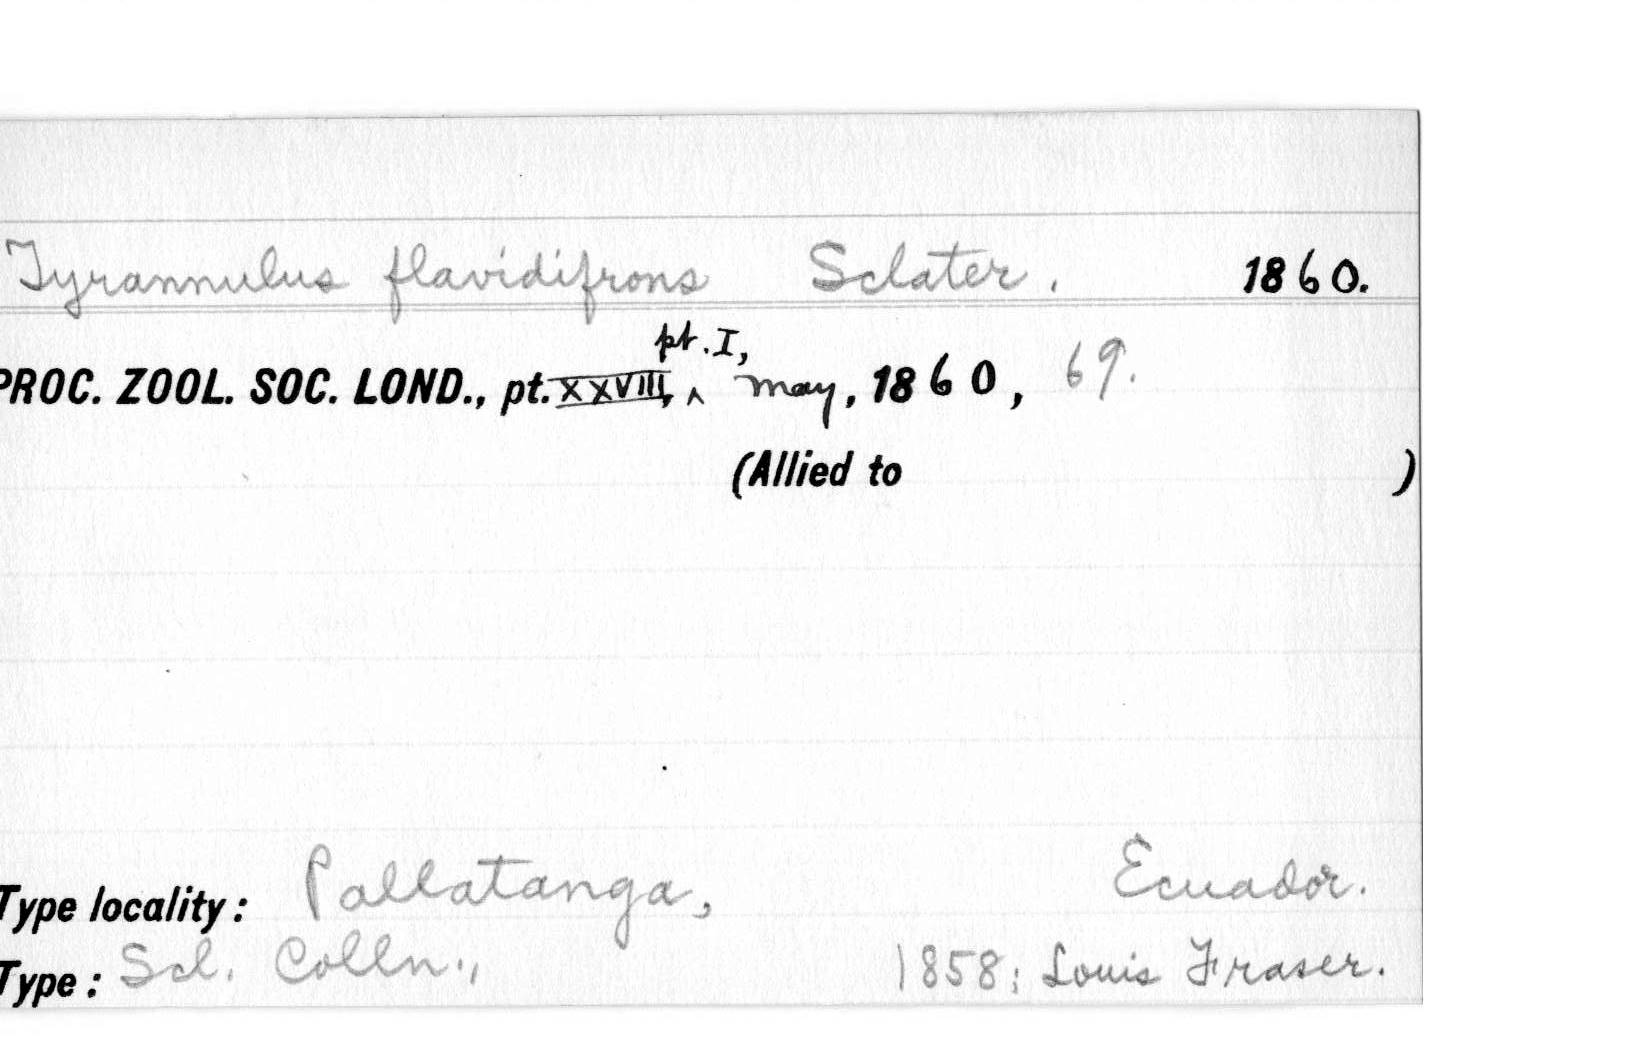 Tyrannulus flavidifrons Sclater. 1860.
pt. I,
PROC. ZOOL. SOC. LOND., pt. XXVIII, ^ May, 1860, 69.
(Allied to )
Type locality: Pallatanga, Ecuador.
Type: Scl. Colln., 1858; Louis Fraser.